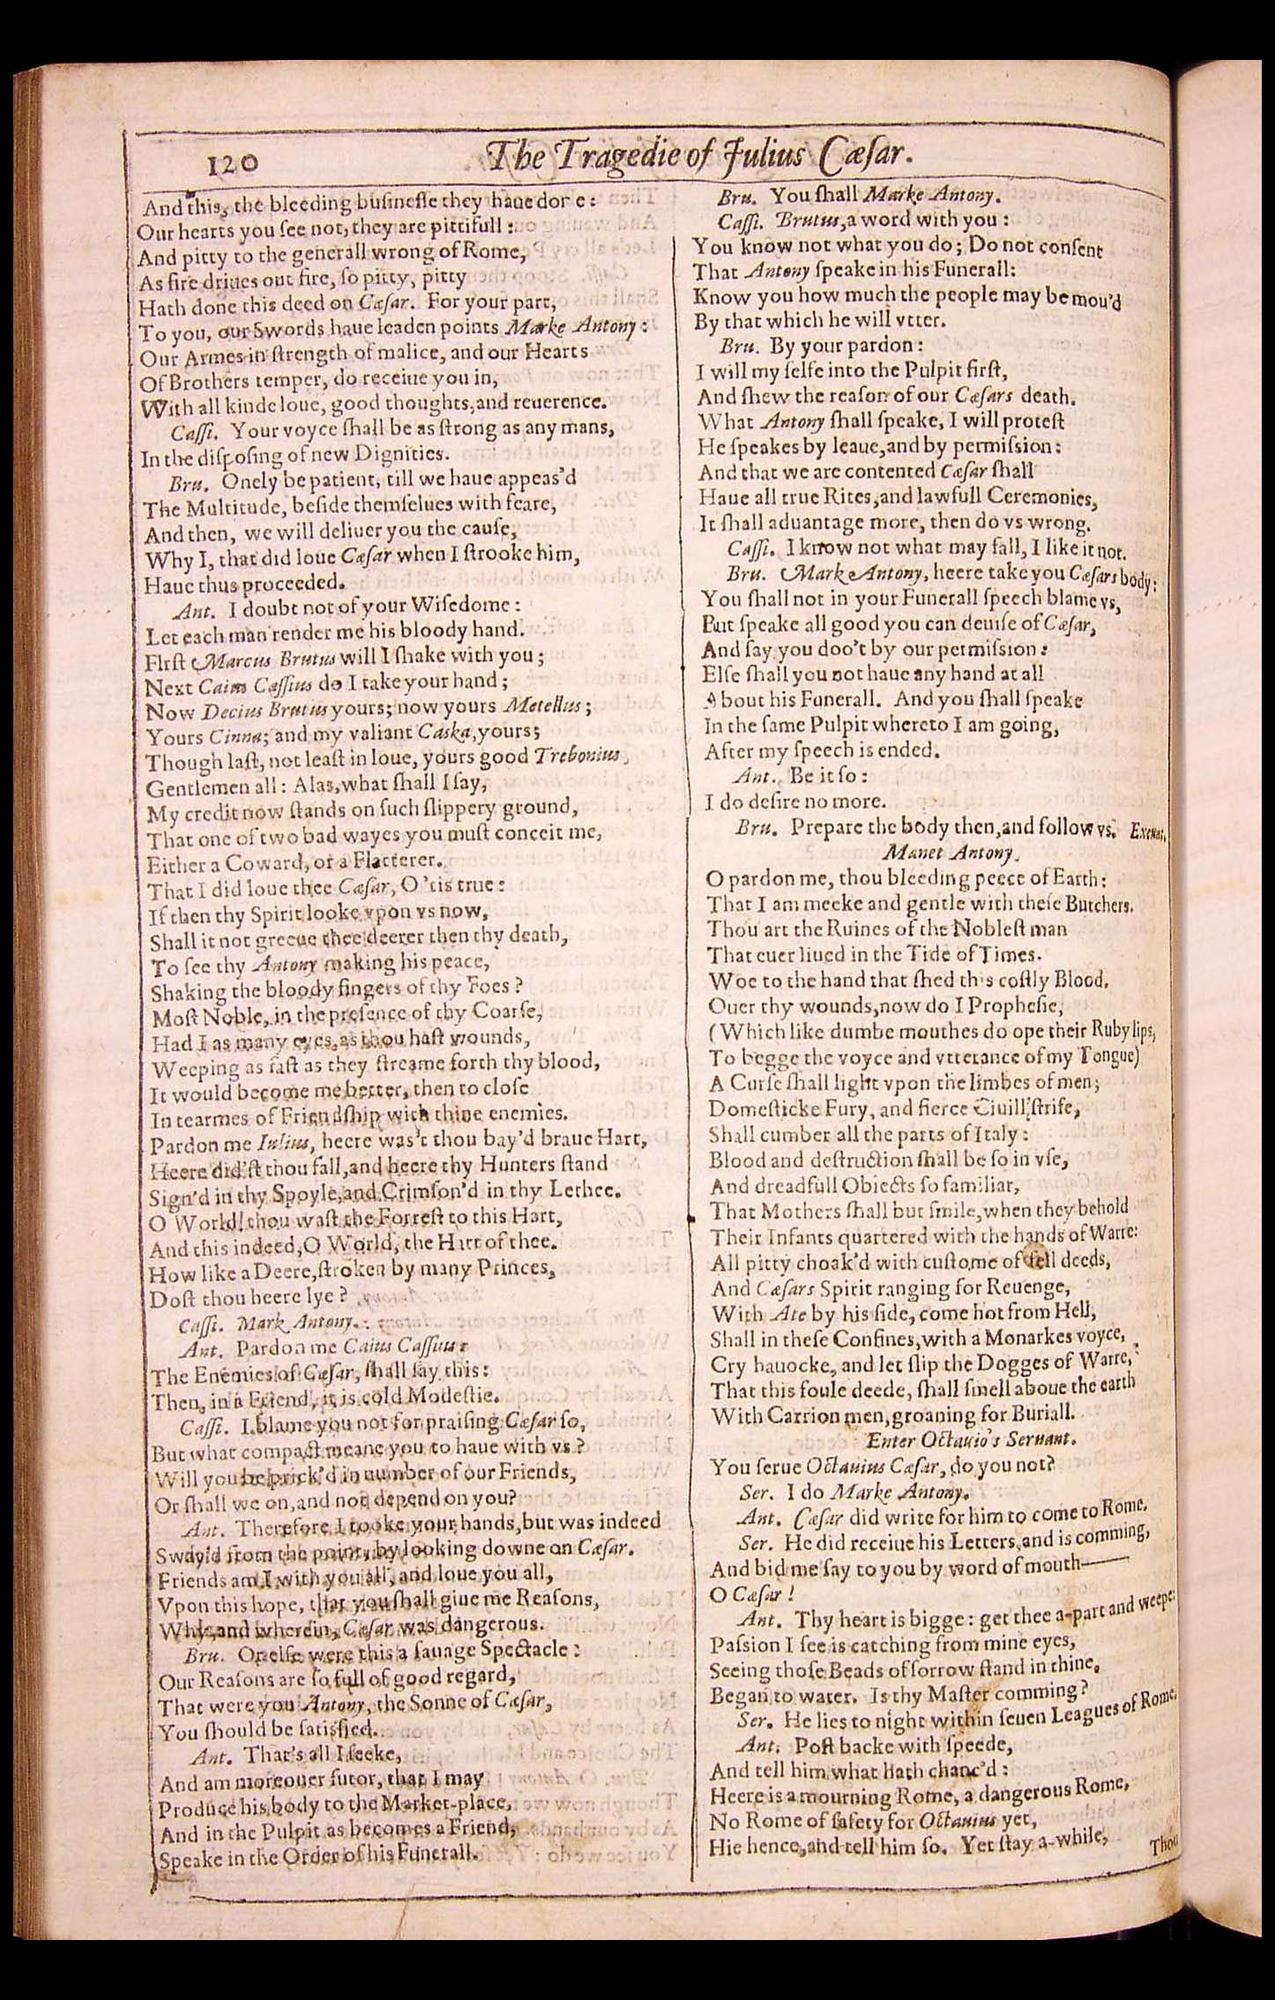 120
The Tragedie of Julius Cæſar.
And this, the bleeding buſineſſe they haue done:
Our hearts you ſee not, they are pittifull:
And pitty to the generall wrong of Rome,
As fire driues out fire, ſo pitty, pitty
Hath done this deed on Cæſar. For your part,
To you, our Swords haue leaden points Marke Antony:
Our Armes in ſtrength of malice, and our Hearts
Of Brothers temper, do receiue you in,
With all kinde loue, good thoughts, and reuerence.
Caſſi. Your voyce ſhall be as ſtrong as any mans,
In the diſpoſing of new Dignities.
Bru. Onely be patient, till we haue appeas'd
The Multitude, beſide themſelues with feare,
And then, we will deliuer you the cauſe,
Why I, that did loue Cæſar when I ſtrooke him,
Haue thus proceeded.
Ant. I doubt not of your Wiſedome:
Let each man render me his bloody hand.
Firſt Marcus Brutus will I ſhake with you;
Next Caius Caſſius do I take your hand;
Now Decius Brutus yours; now yours Metellus;
Yours Cinna; and my valiant Caska, yours;
Though laſt, not leaſt in loue, yours good Trebonius.
Gentlemen all: Alas, what ſhall I ſay,
My credit now ſtands on ſuch ſlippery ground,
That one of two bad wayes you muſt conceit me,
Either a Coward, or a Flatterer.
That I did loue thee Cæſar, O 'tis true:
If then thy Spirit looke vpon vs now,
Shall it not greeue thee deerer then thy death,
To ſee thy Antony making his peace,
Shaking the bloody fingers of thy Foes?
Moſt Noble, in the preſence of thy Coarſe,
Had I as many eyes, as thou haſt wounds,
Weeping as faſt as they ſtreame forth thy blood,
It would become me better, then to cloſe
In tearmes of Friendſhip with thine enemies.
Pardon me Iulius, heere was't thou bay'd braue Hart,
Heere did'ſt thou fall, and heere thy Hunters ſtand
Sign'd in thy Spoyle, and Crimſon'd in thy Lethee.
O World! thou waſt the Forreſt to this Hart,
And this indeed, O World, the Hart of thee.
How like a Deere, ſtroken by many Princes,
Doſt thou heere lye?
Caſſi. Mark Antony.
Ant. Pardon me Caius Caſſius:
The Enemies of Cæſar, ſhall ſay this:
Then, in a Friend, it is cold Modeſtie.
Caſſi. I blame you not for praiſing Cæſar ſo,
But what compact meane you to haue with vs?
Will you be prick'd in number of our Friends,
Or ſhall we on, and not depend on you?
Ant. Therefore I tooke your hands, but was indeed
Sway'd from the point, by looking downe on Cæſar.
Friends am I with you all, and loue you all,
Vpon this hope, that you ſhall giue me Reaſons,
Why, and wherein, Cæſar was dangerous.
Bru. Or elſe were this a ſauage Spectacle:
Our Reaſons are ſo full of good regard,
That were you Antony, the Sonne of Cæſar,
You ſhould be ſatisfied.
Ant. That's all I ſeeke,
And am moreouer ſutor, that I may
Produce his body to the Market-place,
And in the Pulpit as becomes a Friend,
Speake in the Order of his Funerall.
Bru. You ſhall Marke Antony.
Caſſi. Brutus, a word with you:
You know not what you do; Do not conſent
That Antony ſpeake in his Funerall:
Know you how much the people may be mou'd
By that which he will vtter.
Bru. By your pardon:
I will my ſelfe into the Pulpit firſt,
And ſhew the reaſon of our Cæſars death.
What Antony ſhall ſpeake, I will proteſt
He ſpeakes by leaue, and by permiſsion:
And that we are contented Cæſar ſhall
Haue all true Rites, and lawfull Ceremonies,
It ſhall aduantage more, then do vs wrong.
Caſſi. I know not what may fall, I like it not.
Bru. Mark Antony, heere take you Cæſars body:
You ſhall not in your Funerall ſpeech blame vs,
But ſpeake all good you can deuiſe of Cæſar,
And ſay you doo't by our permiſsion:
Elſe ſhall you not haue any hand at all
About his Funerall. And you ſhall ſpeake
In the ſame Pulpit whereto I am going,
After my ſpeech is ended.
Ant. Be it ſo:
I do deſire no more.
Bru. Prepare the body then, and follow vs. Exeunt.
Manet Antony.
O pardon me, thou bleeding peece of Earth:
That I am meeke and gentle with theſe Butchers.
Thou art the Ruines of the Nobleſt man
That euer liued in the Tide of Times.
Woe to the hand that ſhed this coſtly Blood.
Ouer thy wounds, now do I Propheſie,
(Which like dumbe mouthes do ope their Ruby lips,
To begge the voyce and vtterance of my Tongue)
A Curſe ſhall light vpon the limbes of men;
Domeſticke Fury, and fierce Ciuill ſtrife,
Shall cumber all the parts of Italy:
Blood and deſtruction ſhall be ſo in vſe,
And dreadfull Obiects ſo familiar,
That Mothers ſhall but ſmile, when they behold
Their Infants quartered with the hands of Warre:
All pitty choak'd with cuſtome of fell deeds,
And Cæſars Spirit ranging for Reuenge,
With Ate by his ſide, come hot from Hell,
Shall in theſe Confines, with a Monarkes voyce,
Cry hauocke, and let ſlip the Dogges of Warre,
That this foule deede, ſhall ſmell aboue the earth
With Carrion men, groaning for Buriall.
Enter Octauio's Seruant.
You ſerue Octauius Cæſar, do you not?
Ser. I do Marke Antony.
Ant. Cæſar did write for him to come to Rome.
Ser. He did receiue his Letters, and is comming,
And bid me ſay to you by word of mouth——
O Cæſar!
Ant. Thy heart is bigge: get thee a-part and weepe:
Paſsion I ſee is catching from mine eyes,
Seeing thoſe Beads of ſorrow ſtand in thine,
Began to water. Is thy Maſter comming?
Ser. He lies to night within ſeuen Leagues of Rome.
Ant. Poſt backe with ſpeede,
And tell him what hath chanc'd:
Heere is a mourning Rome, a dangerous Rome,
No Rome of ſafety for Octauius yet,
Hie hence, and tell him ſo. Yet ſtay a-while,
Thou